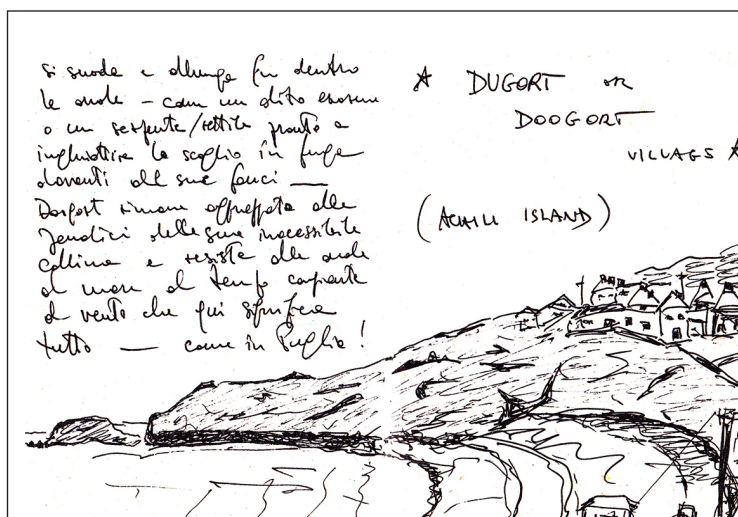 si snoda e allunga fin dentro
le onde – com un dito enorme
o un serpente/rettile pronto a
inghiottire lo scoglio in fuga
davanti alle sue fauci —
Doogort rimane aggrappato alle
pendici delle sue inaccessibile
collina e resiste alle onde
al mare al tempo
al vento che qui significa
tutto — come in Puglia!
☆ DUGORT OR
DOOGORT
VILLAGE ☆
(ACHILL ISLAND)